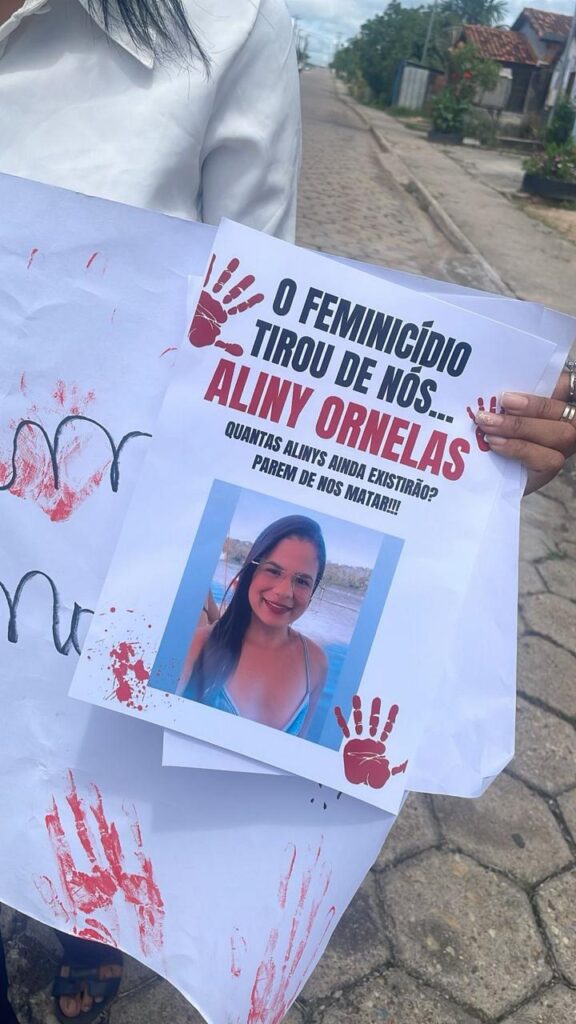 O FEMINICÍDIO
TIROU DE NÓS...
ALINY ORNELAS
QUANTAS ALINYS AINDA EXISTIRÃO?
PAREM DE NOS MATAR!!!